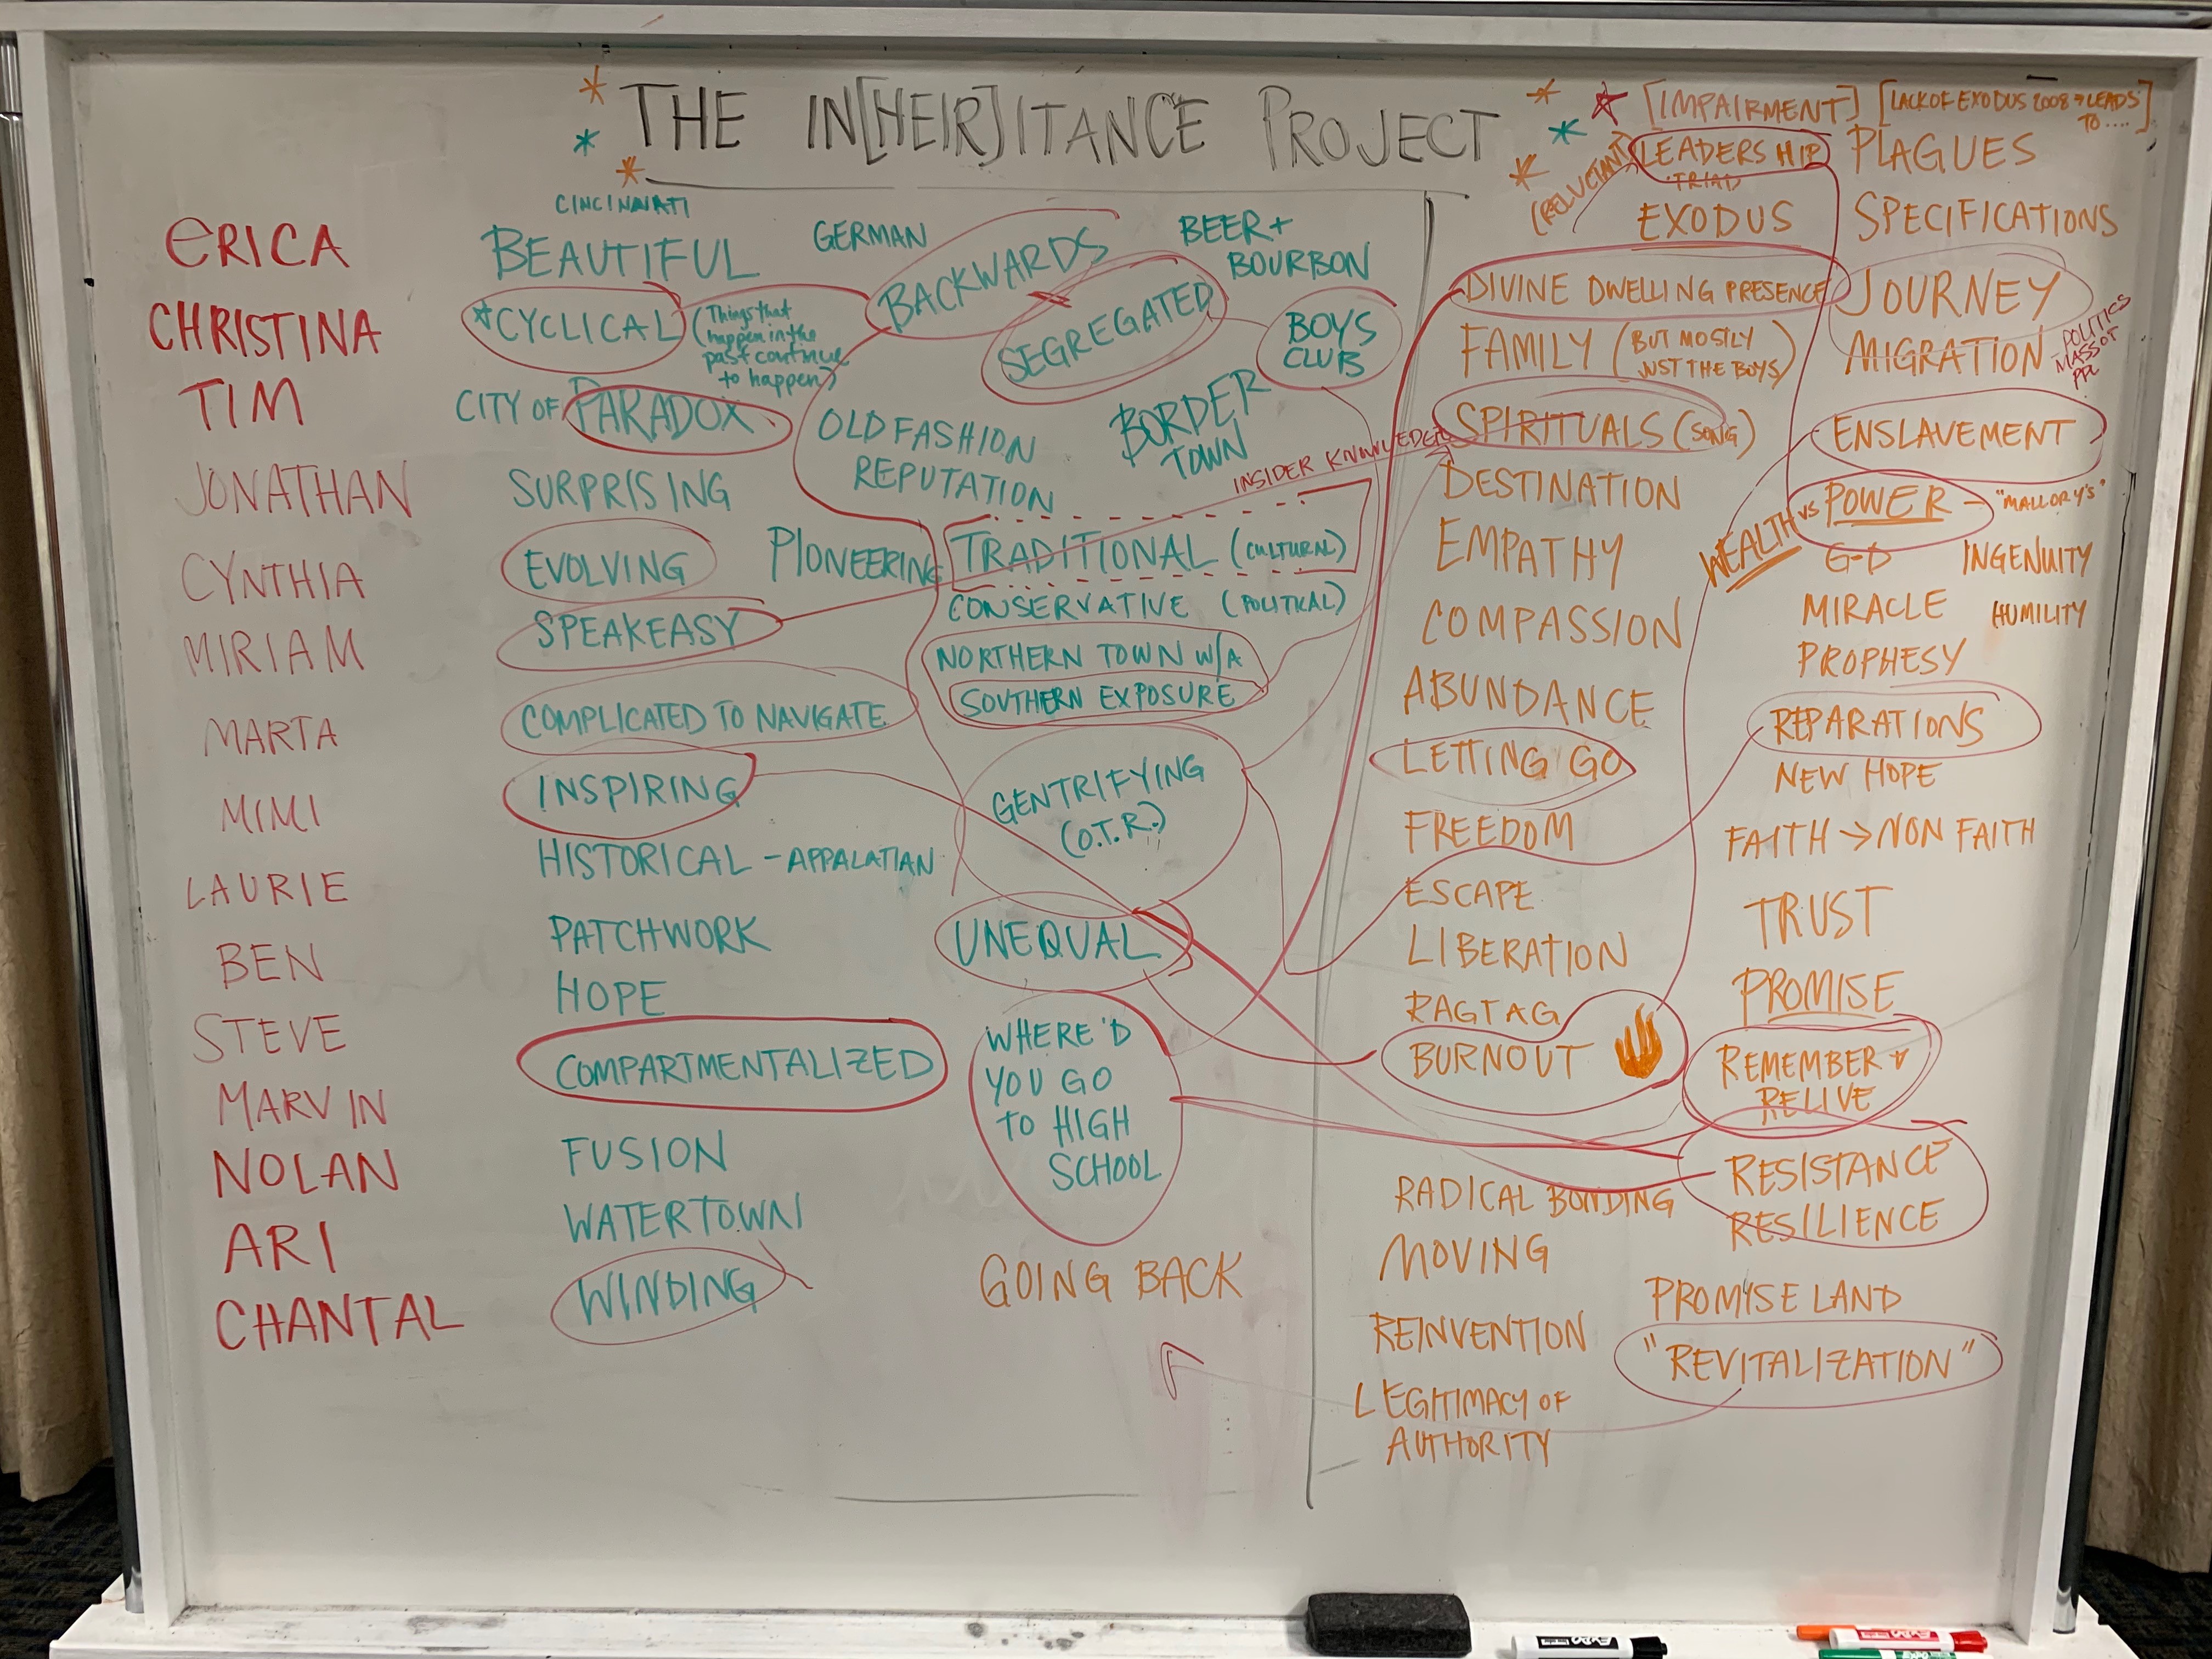 THE IN[HEIR]ITANCE PROJECT
ERICA
CHRISTINA
TIM
JONATHAN
CYNTHIA
MIRIAM
MARTA
MIMI
LAURIE
BEN
STEVE
MARVIN
NOLAN
ARI
CHANTAL
CINCINNATI
BEAUTIFUL
*CYCLICAL
(Things that
happen in the
past continue
to happen)
CITY OF PARADOX
SURPRISING
EVOLVING
SPEAKEASY
COMPLICATED TO NAVIGATE
INSPIRING
HISTORICAL - APPALATIAN
PATCHWORK
HOPE
COMPARTMENTALIZED
FUSION
WATERTOWN
WINDING
GERMAN
BACKWARDS
SEGREGATED
BEER +
BOURBON
BOYS
CLUB
OLD FASHION
REPUTATION
BORDER
TOWN
INSIDER KNOWLEDGE
PIONEERING
TRADITIONAL (CULTURAL)
CONSERVATIVE (POLITICAL)
NORTHERN TOWN W/A
SOUTHERN EXPOSURE
GENTRIFYING
(O.T.R.)
UNEQUAL
WHERE'D
YOU GO
TO HIGH
SCHOOL
GOING BACK
[IMPAIRMENT]
(RELUCTANT)
LEADERSHIP
TRIAD
EXODUS
DIVINE DWELLING PRESENCE
FAMILY (BUT MOSTLY
JUST THE BOYS)
SPIRITUALS (SONG)
DESTINATION
EMPATHY
COMPASSION
ABUNDANCE
LETTING GO
FREEDOM
ESCAPE
LIBERATION
RAGTAG
BURNOUT
RADICAL BONDING
MOVING
REINVENTION
LEGITIMACY OF
AUTHORITY
[LACK OF EXODUS 2008 → LEADS
TO ....]
PLAGUES
SPECIFICATIONS
JOURNEY
MIGRATION
POLITICS
PPL
ENSLAVEMENT
WEALTH VS POWER - "MALLORY'S"
G-D
INGENUITY
MIRACLE
HUMILITY
PROPHESY
REPARATIONS
NEW HOPE
FAITH → NON FAITH
TRUST
PROMISE
REMEMBER +
RELIVE
RESISTANCE
RESILIENCE
PROMISE LAND
"REVITALIZATION"
EXPO
EXPO